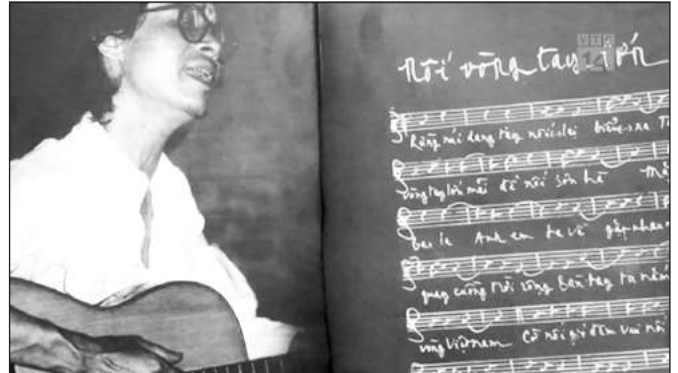 VTC
14
Nối vòng tay lớn
Rừng núi dang tay nối lại biển xa T
vòng tay lớn mãi để nối sơn hà Mặ
bao la Anh em ta về gặp nhau
quay cuồng trời rộng Bàn tay ta nắm
vòng Việt nam Cờ nối gió đêm vui nối